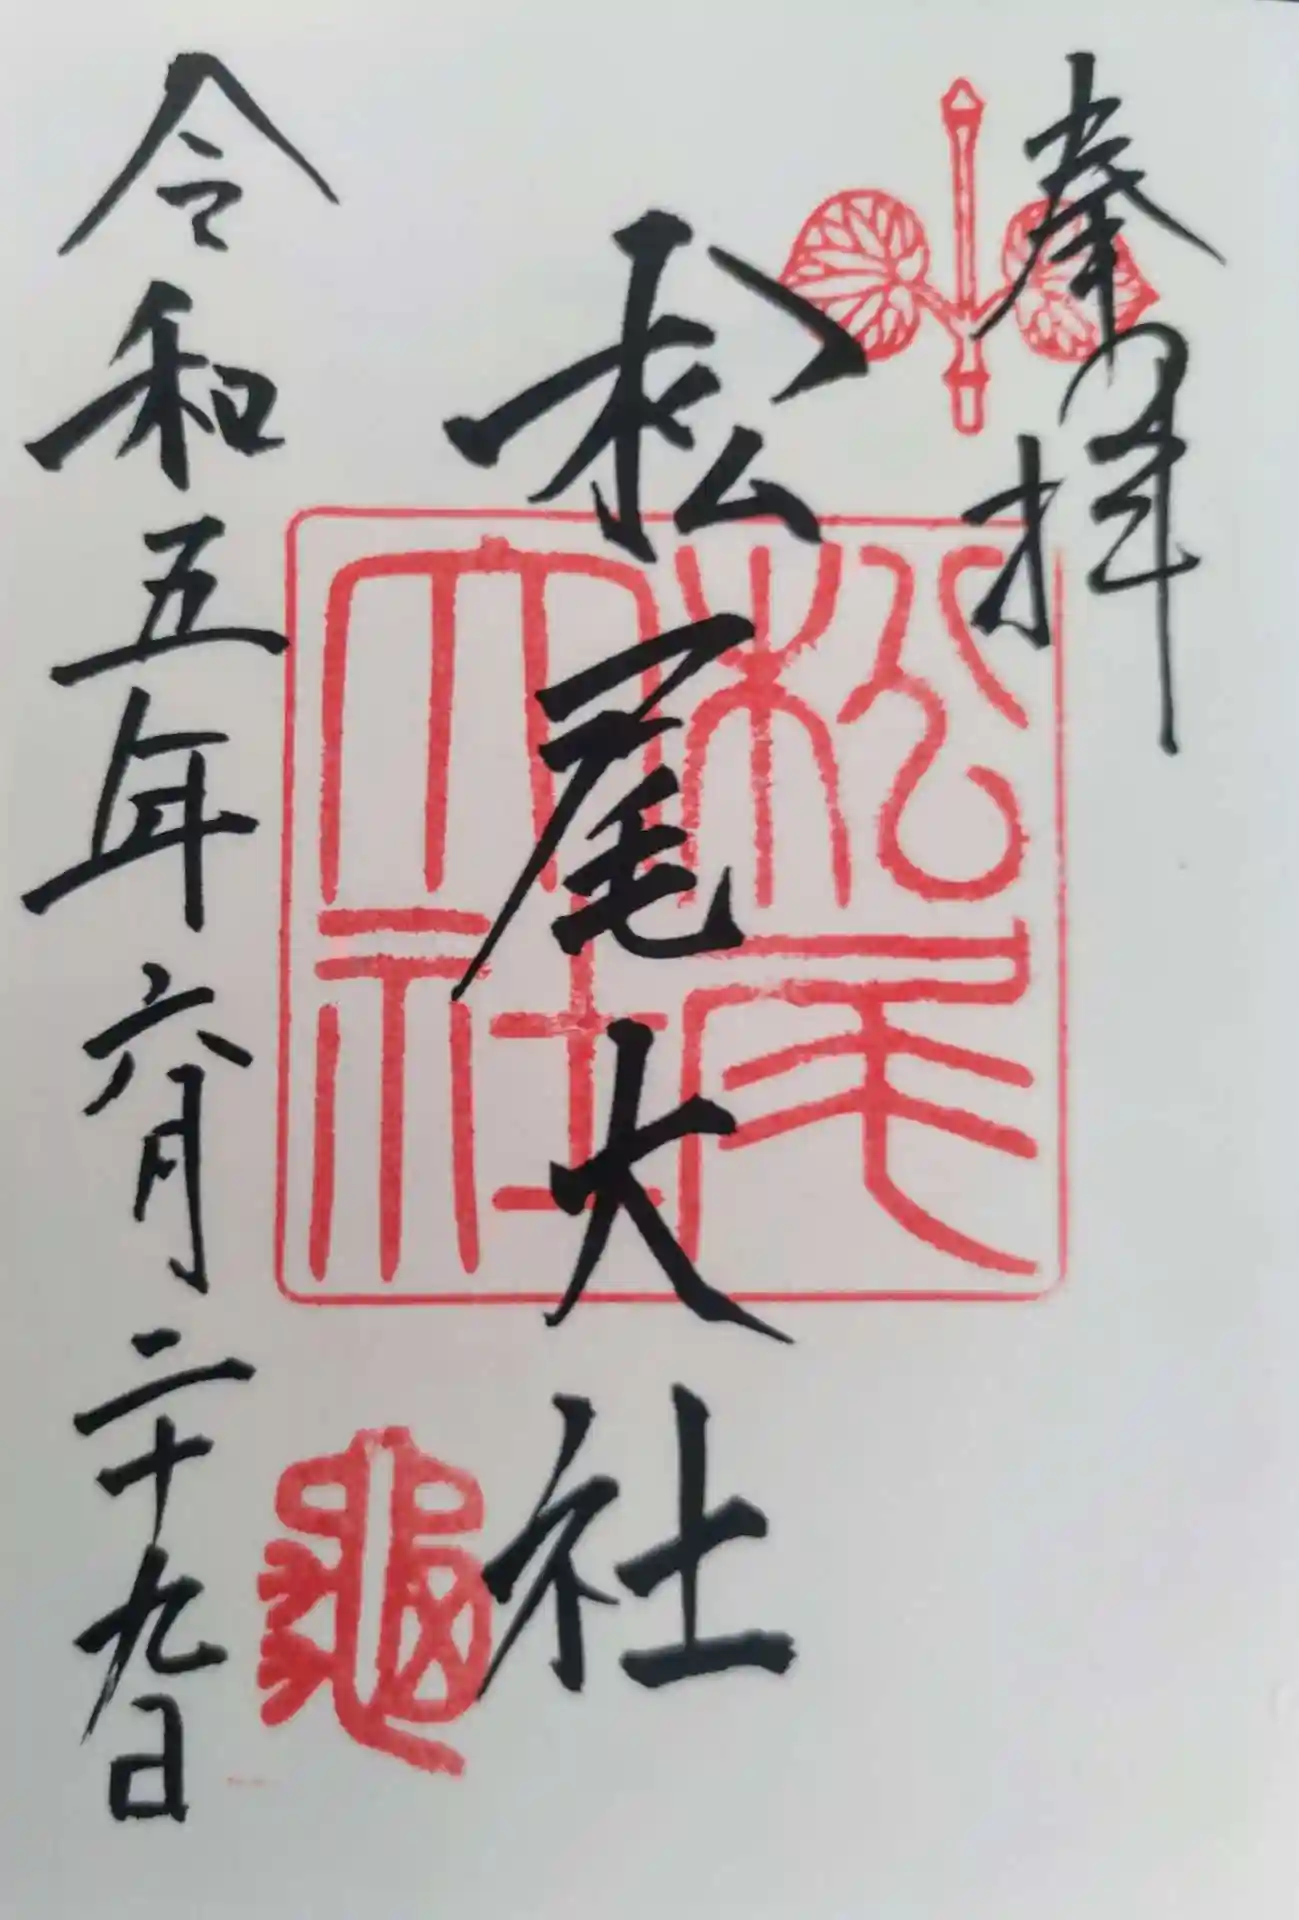 奉拝
松尾大社
松尾大社
令和五年六月二十九日
龜